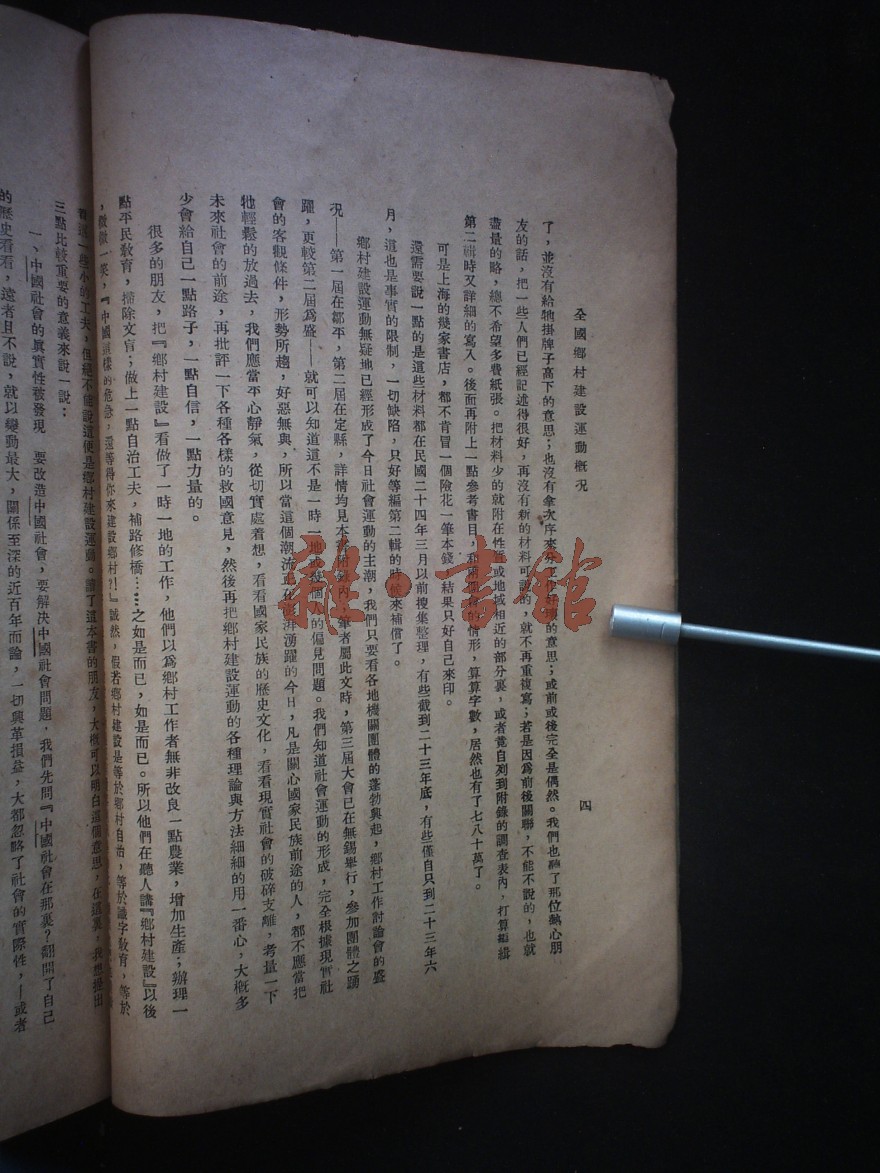 全國鄉村建設運動概況
四
了，並沒有給牠掛牌子高下的意思；也沒有拿次序來分工作好壞的意思；或前或後完全是偶然。我們也聽了那位熱心朋
友的話，把一些人們已經記述得很好，再沒有新的材料可說的，就不再重複寫；若是因為前後關聯，不能不說的，也就
盡量的略，總不希望多費紙張。把材料少的就附在性質或地域相近的部分裏，或者竟自列到附錄的調查表內，打算編緝
第二輯時又詳細的寫入。後面再附上一點參考書目，和兩 的情形，算算字數，居然也有了七八十萬了。
可是上海的幾家書店，都不肯冒一個險花一筆本錢，結果只好自己來印。
還需要說一點的是這些材料都在民國二十四年三月以前搜集整理，有些截到二十三年底，有些僅自只到二十三年六
月，這也是事實的限制，一切缺陷，只好等編第二輯的時候來補償了。
鄉村建設運動無疑地已經形成了今日社會運動的主潮，我們只要看各地機關團體的蓬勃興起，鄉村工作討論會的盛
況——第一屆在鄒平，第二屆在定縣，詳情均見本書附錄內，筆者屬此文時，第三屆大會已在無錫舉行，參加團體之踴
躍，更較第二屆為盛——就可以知道這不是一時一地或幾個人的偏見問題。我們知道社會運動的形成，完全根據現實社
會的客觀條件，形勢所趨，好惡無與，所以當這個潮流正在澎湃湧躍的今日，凡是關心國家民族前途的人，都不應當把
牠輕鬆的放過去，我們應當平心靜氣，從切實處着想，看看國家民族的歷史文化，看看現實社會的破碎支離，考量一下
未來社會的前途，再批評一下各種各樣的救國意見，然後再把鄉村建設運動的各種理論與方法細細的用一番心，大概多
少會給自己一點路子，一點自信，一點力量的。
很多的朋友，把『鄉村建設』看做了一時一地的工作，他們以為鄉村工作者無非改良一點農業，增加生產；辦理一
點平民教育，掃除文盲；做上一點自治工夫，補路修橋……之如是而已，如是而已。所以他們在聽人講『鄉村建設』以後
，微微一笑，『中國這樣的危急，還等得你來建設鄉村？！』誠然，假若鄉村建設是等於鄉村自治，等於識字教育，等於
一些小的工夫，但絕不能說這便是鄉村建設運動。讀了這本書的朋友，大概可以明白這個意思，在這裏，我想提出
三點比較重要的意義來說一說：
一、中國社會的真實性被發現 要改造中國社會，要解決中國社會問題，我們先問『中國社會在那裏？翻開了自己
的歷史看看，遠者且不說，就以變動最大，關係至深的近百年而論，一切興革損益，大都忽略了社會的實際性，—或者
雜·書館